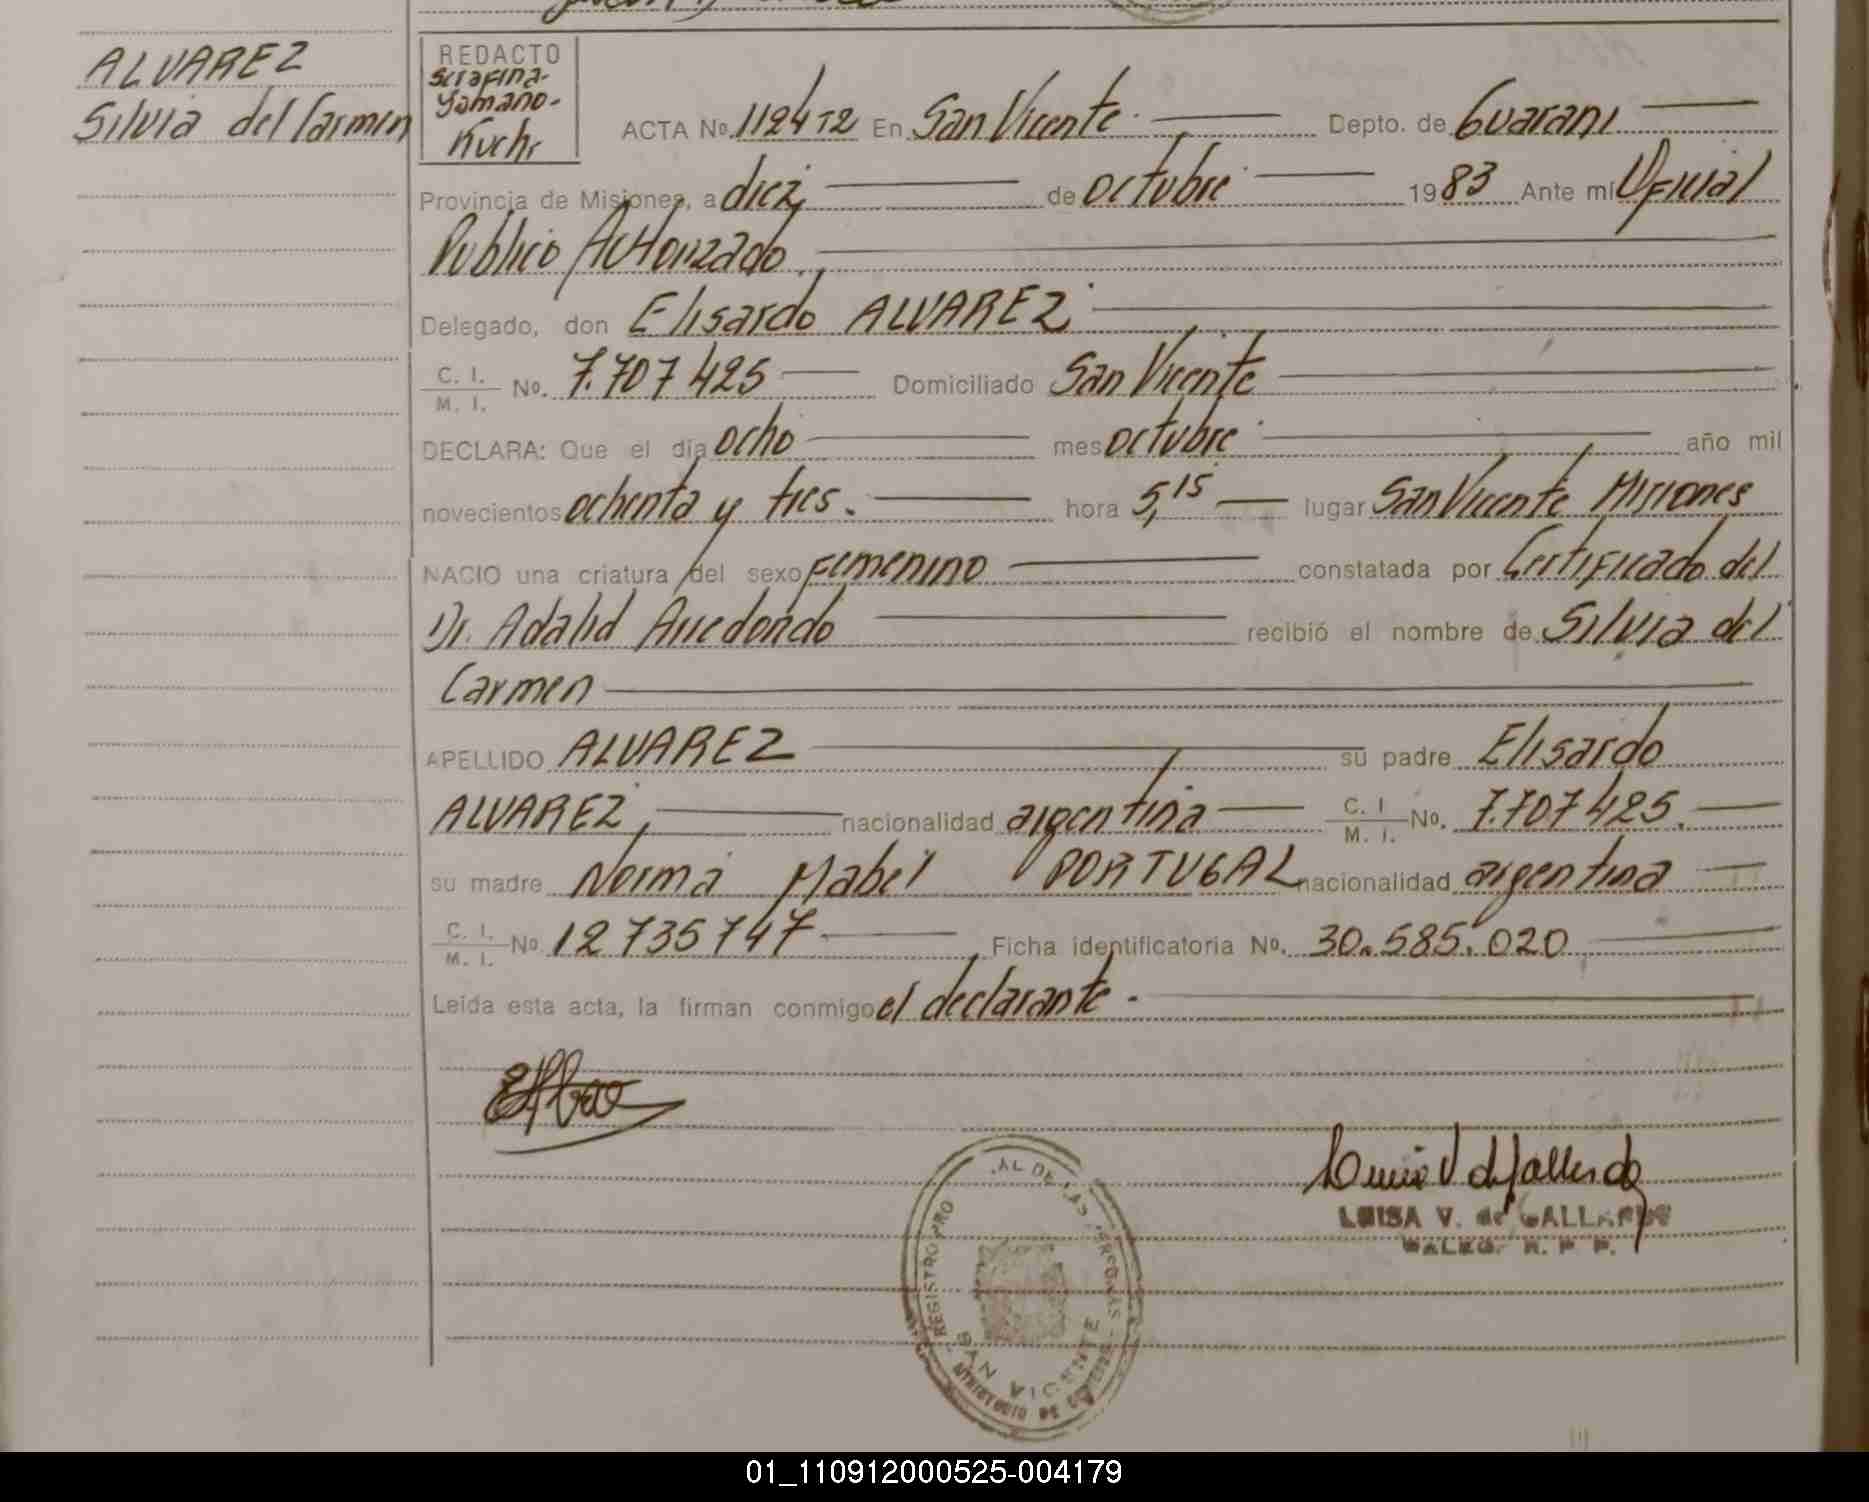 ALVAREZ
Silvia del Carmen
REDACTO
Serafina-
Yamano-
Kuchr
ACTA No. 1124 T2 En San Vicente. Depto. de Guarani
Provincia de Misiones, a diez de octubre 1983 Ante mí Oficial
Publico Autorizado,
Delegado, don Elisardo ALVAREZ
C. I. / M. I. No. 7.707425 Domiciliado San Vicente
DECLARA: Que el día ocho mes octubre año mil
novecientos ochenta y tres. hora 5,15 lugar San Vicente Misiones
NACIO una criatura del sexo Femenino constatada por Certificado del
Dr. Adalid Arredondo recibió el nombre de Silvia del
Carmen
APELLIDO ALVAREZ su padre Elisardo
ALVAREZ, nacionalidad argentina C. I / M. I. No. 7.707425.
su madre Norma Mabel PORTUGAL nacionalidad argentina
C. I. / M. I. No. 12 735 747 Ficha identificatoria No. 30.585.020
Leida esta acta, la firman conmigo el declarante.
LUISA V. de GALLARDO
REGISTRO PRO AL DE LAS PERSONAS
SAN VICENTE
01_110912000525-004179